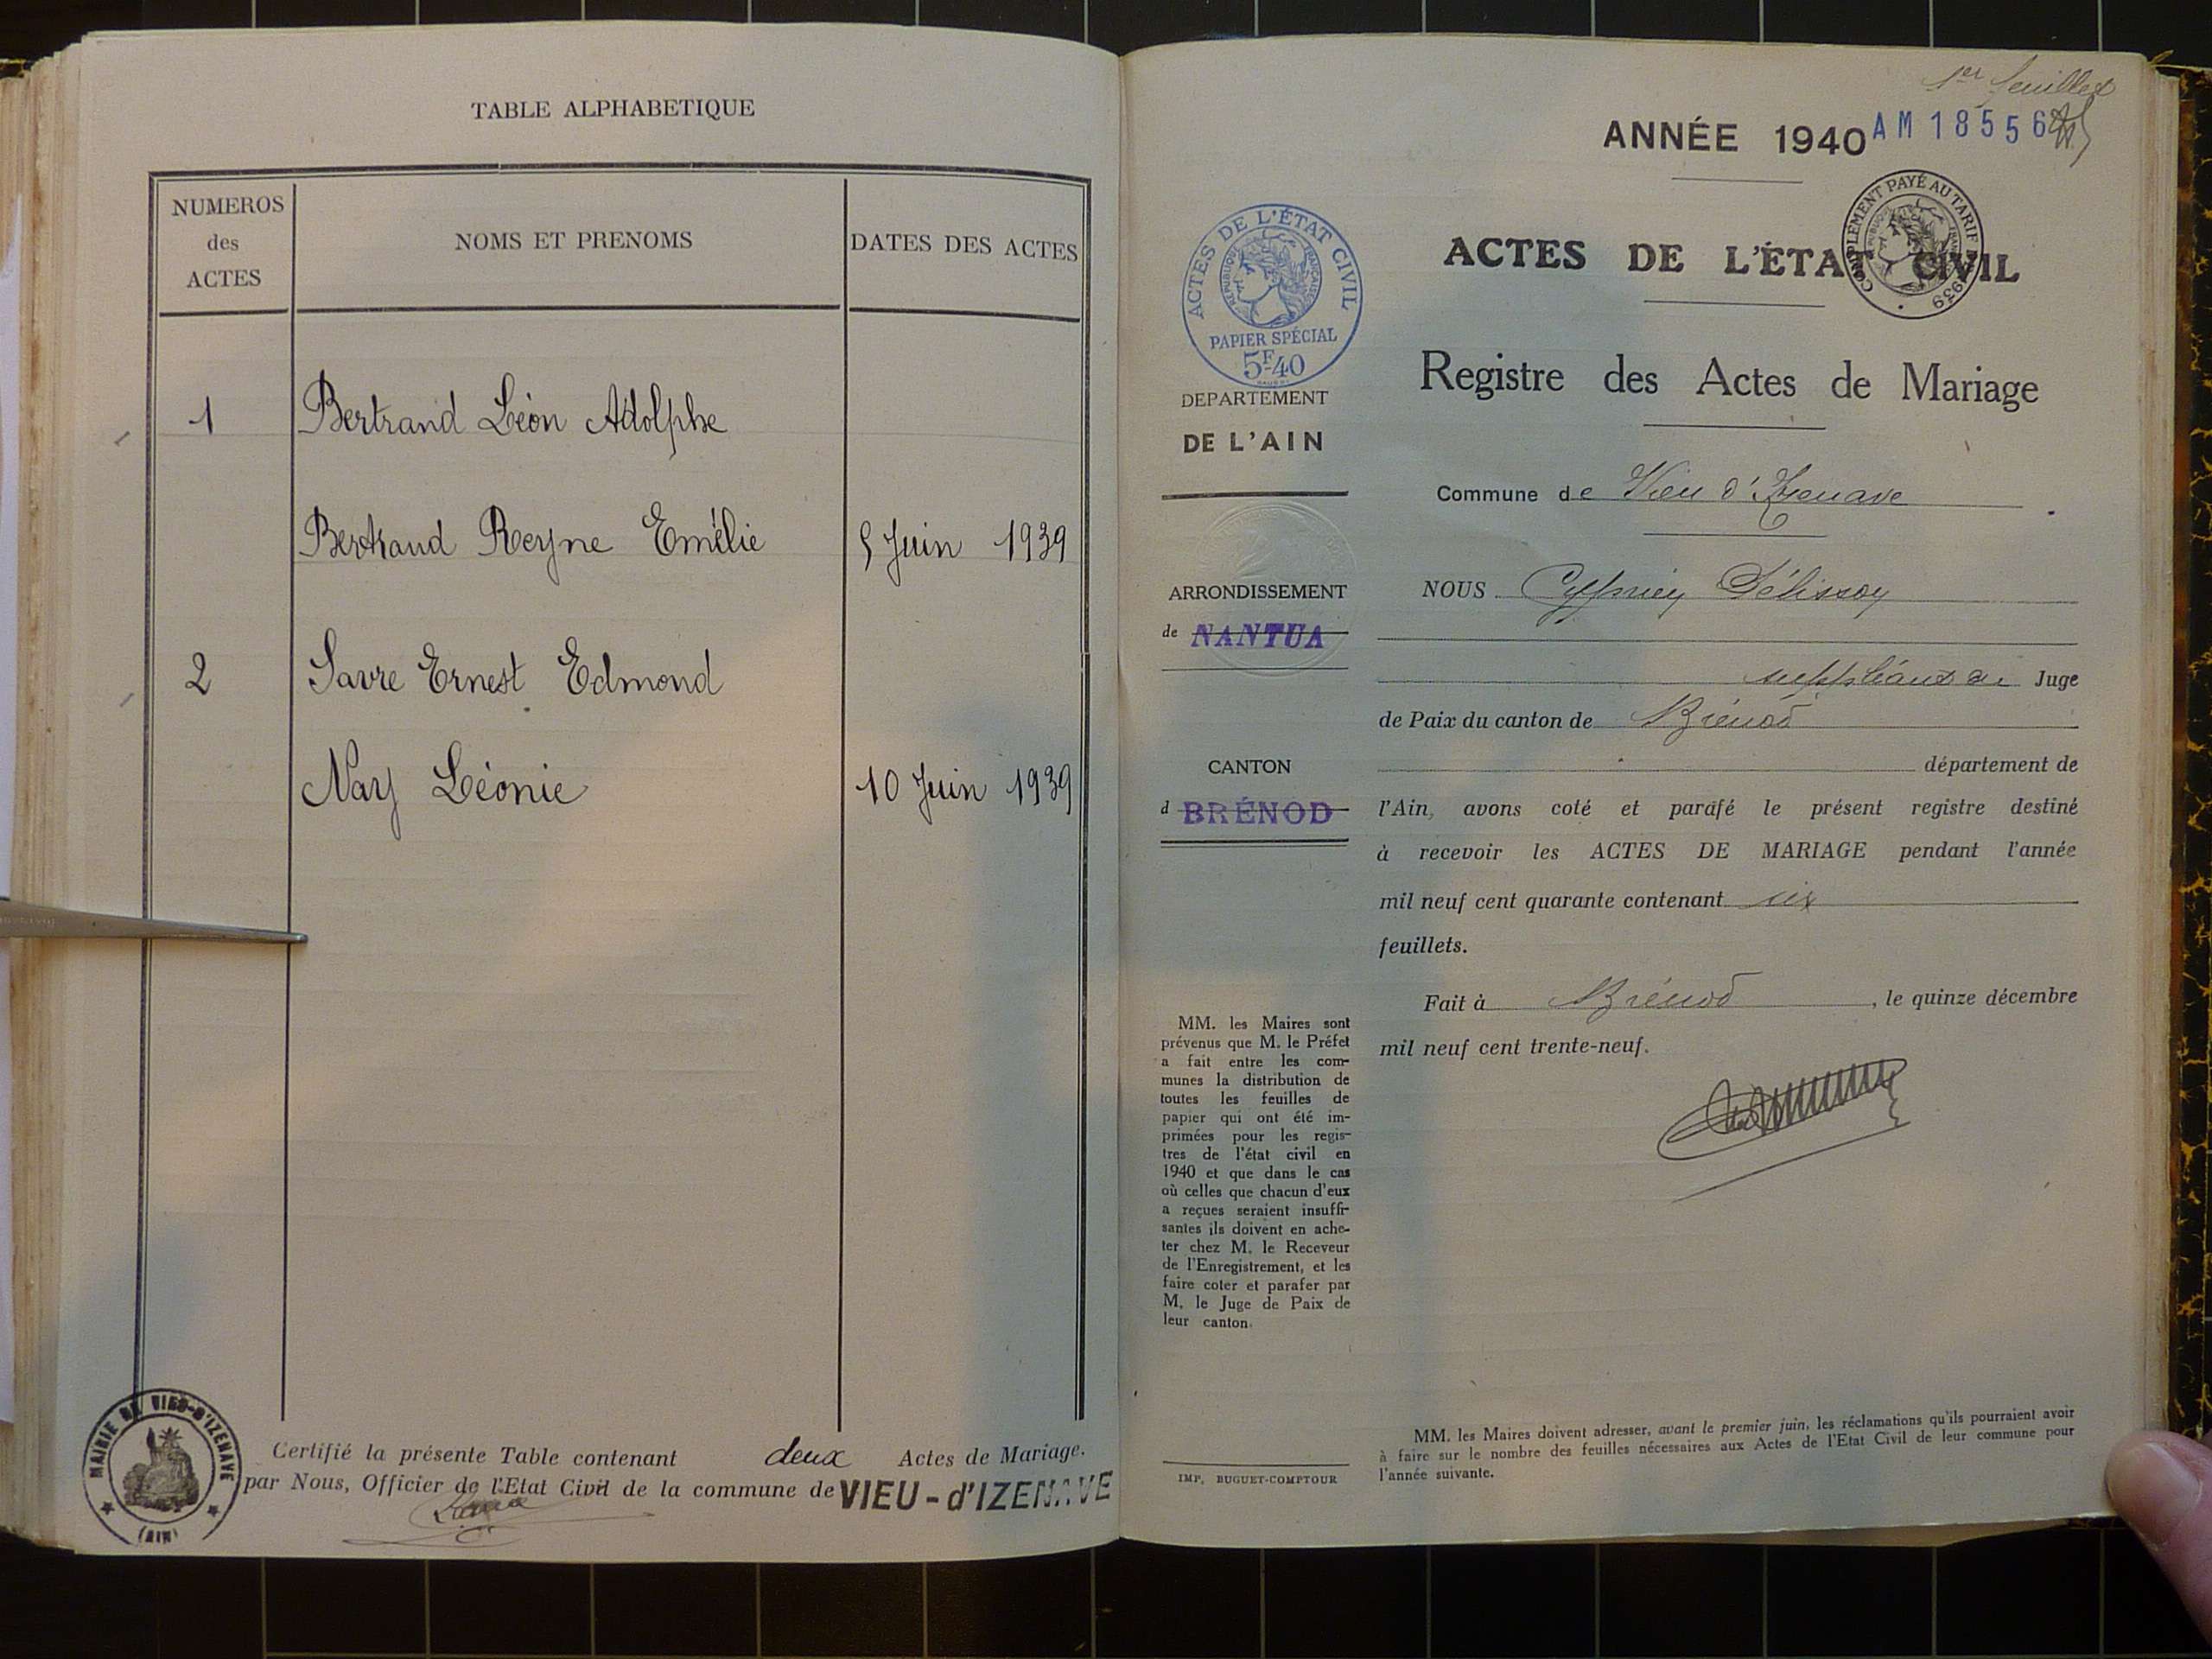 TABLE ALPHABETIQUE
NUMEROS
des
ACTES
NOMS ET PRENOMS
DATES DES ACTES
1 Bertrand Léon Adolphe
Bertrand Reyne Emélie 5 Juin 1939
2 Savre Ernest Edmond
Nay Léonie 10 Juin 1939
Certifié la présente Table contenant deux Actes de Mariage.
par Nous, Officier de l'Etat Civil de la commune de VIEU-d'IZENAVE
MAIRIE DE VIEU-D'IZENAVE
(AIN)
1er feuillet
ANNÉE 1940 AM 18556
COMPLÉMENT PAYÉ AU TARIF 1939
ACTES DE L'ÉTAT CIVIL
RÉPUBLIQUE FRANÇAISE
PAPIER SPÉCIAL
5F40
ACTES DE L'ÉTAT CIVIL
Registre des Actes de Mariage
DEPARTEMENT
DE L'AIN
Commune de Vieu d'Izenave
ARRONDISSEMENT
de NANTUA
CANTON
d BRÉNOD
NOUS Cyprien Pélisson
suppléant du Juge
de Paix du canton de Brénod
département de
l'Ain, avons coté et parafé le présent registre destiné
à recevoir les ACTES DE MARIAGE pendant l'année
mil neuf cent quarante contenant six
feuillets.
Fait à Brénod, le quinze décembre
mil neuf cent trente-neuf.
MM. les Maires sont
prévenus que M. le Préfet
a fait entre les com-
munes la distribution de
toutes les feuilles de
papier qui ont été im-
primées pour les regis-
tres de l'état civil en
1940 et que dans le cas
où celles que chacun d'eux
a reçues seraient insuffi-
santes ils doivent en ache-
ter chez M. le Receveur
de l'Enregistrement, et les
faire coter et parafer par
M. le Juge de Paix de
leur canton.
IMP. BUGUET-COMPTOUR
MM. les Maires doivent adresser, avant le premier juin, les réclamations qu'ils pourraient avoir
à faire sur le nombre des feuilles nécessaires aux Actes de l'Etat Civil de leur commune pour
l'année suivante.